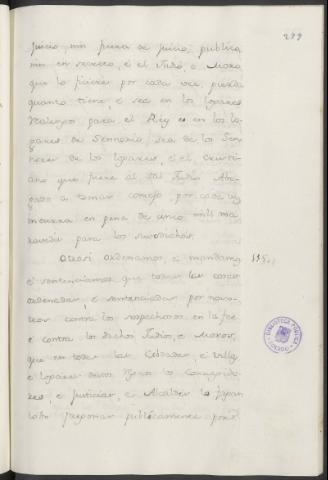 299
juicio, nin fuera de juicio, publica
nin en secreto, é el Judio, o Moro
que lo ficiere por cada vez, pierda
quanto tiene, é sea en los logares
Realengos, para el Rey é en los lo-
gares de Sennorio, sea de los Sen-
nores de los logares, é el Cristi-
ano que fuere al tal Judio Abo-
gado a tomar consejo, por cada vez
incurra en pena de cinco mill ma-
ravedis para los susodichos.
Otrosi ordenamos, é mandamos 115.
é sentenciamos que todas las cosas
ordenadas, é sentenciadas por noso-
tros contra los sospechosos en la fee
é contra los dichos Judios, é Moros,
que en todas las Cibdades, é Villas
é logares destos Regnos los Corregido-
res, é Justicias, é Alcaldes lo fagan
todo pregonar publicamente por
BIBLIOTECA PUBLICA
TOLEDO